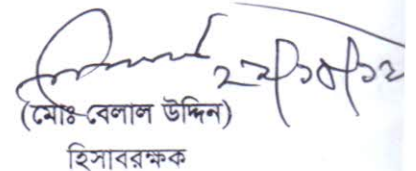 ২২/১০/১২
(মোঃ বেলাল উদ্দিন)
হিসাবরক্ষক